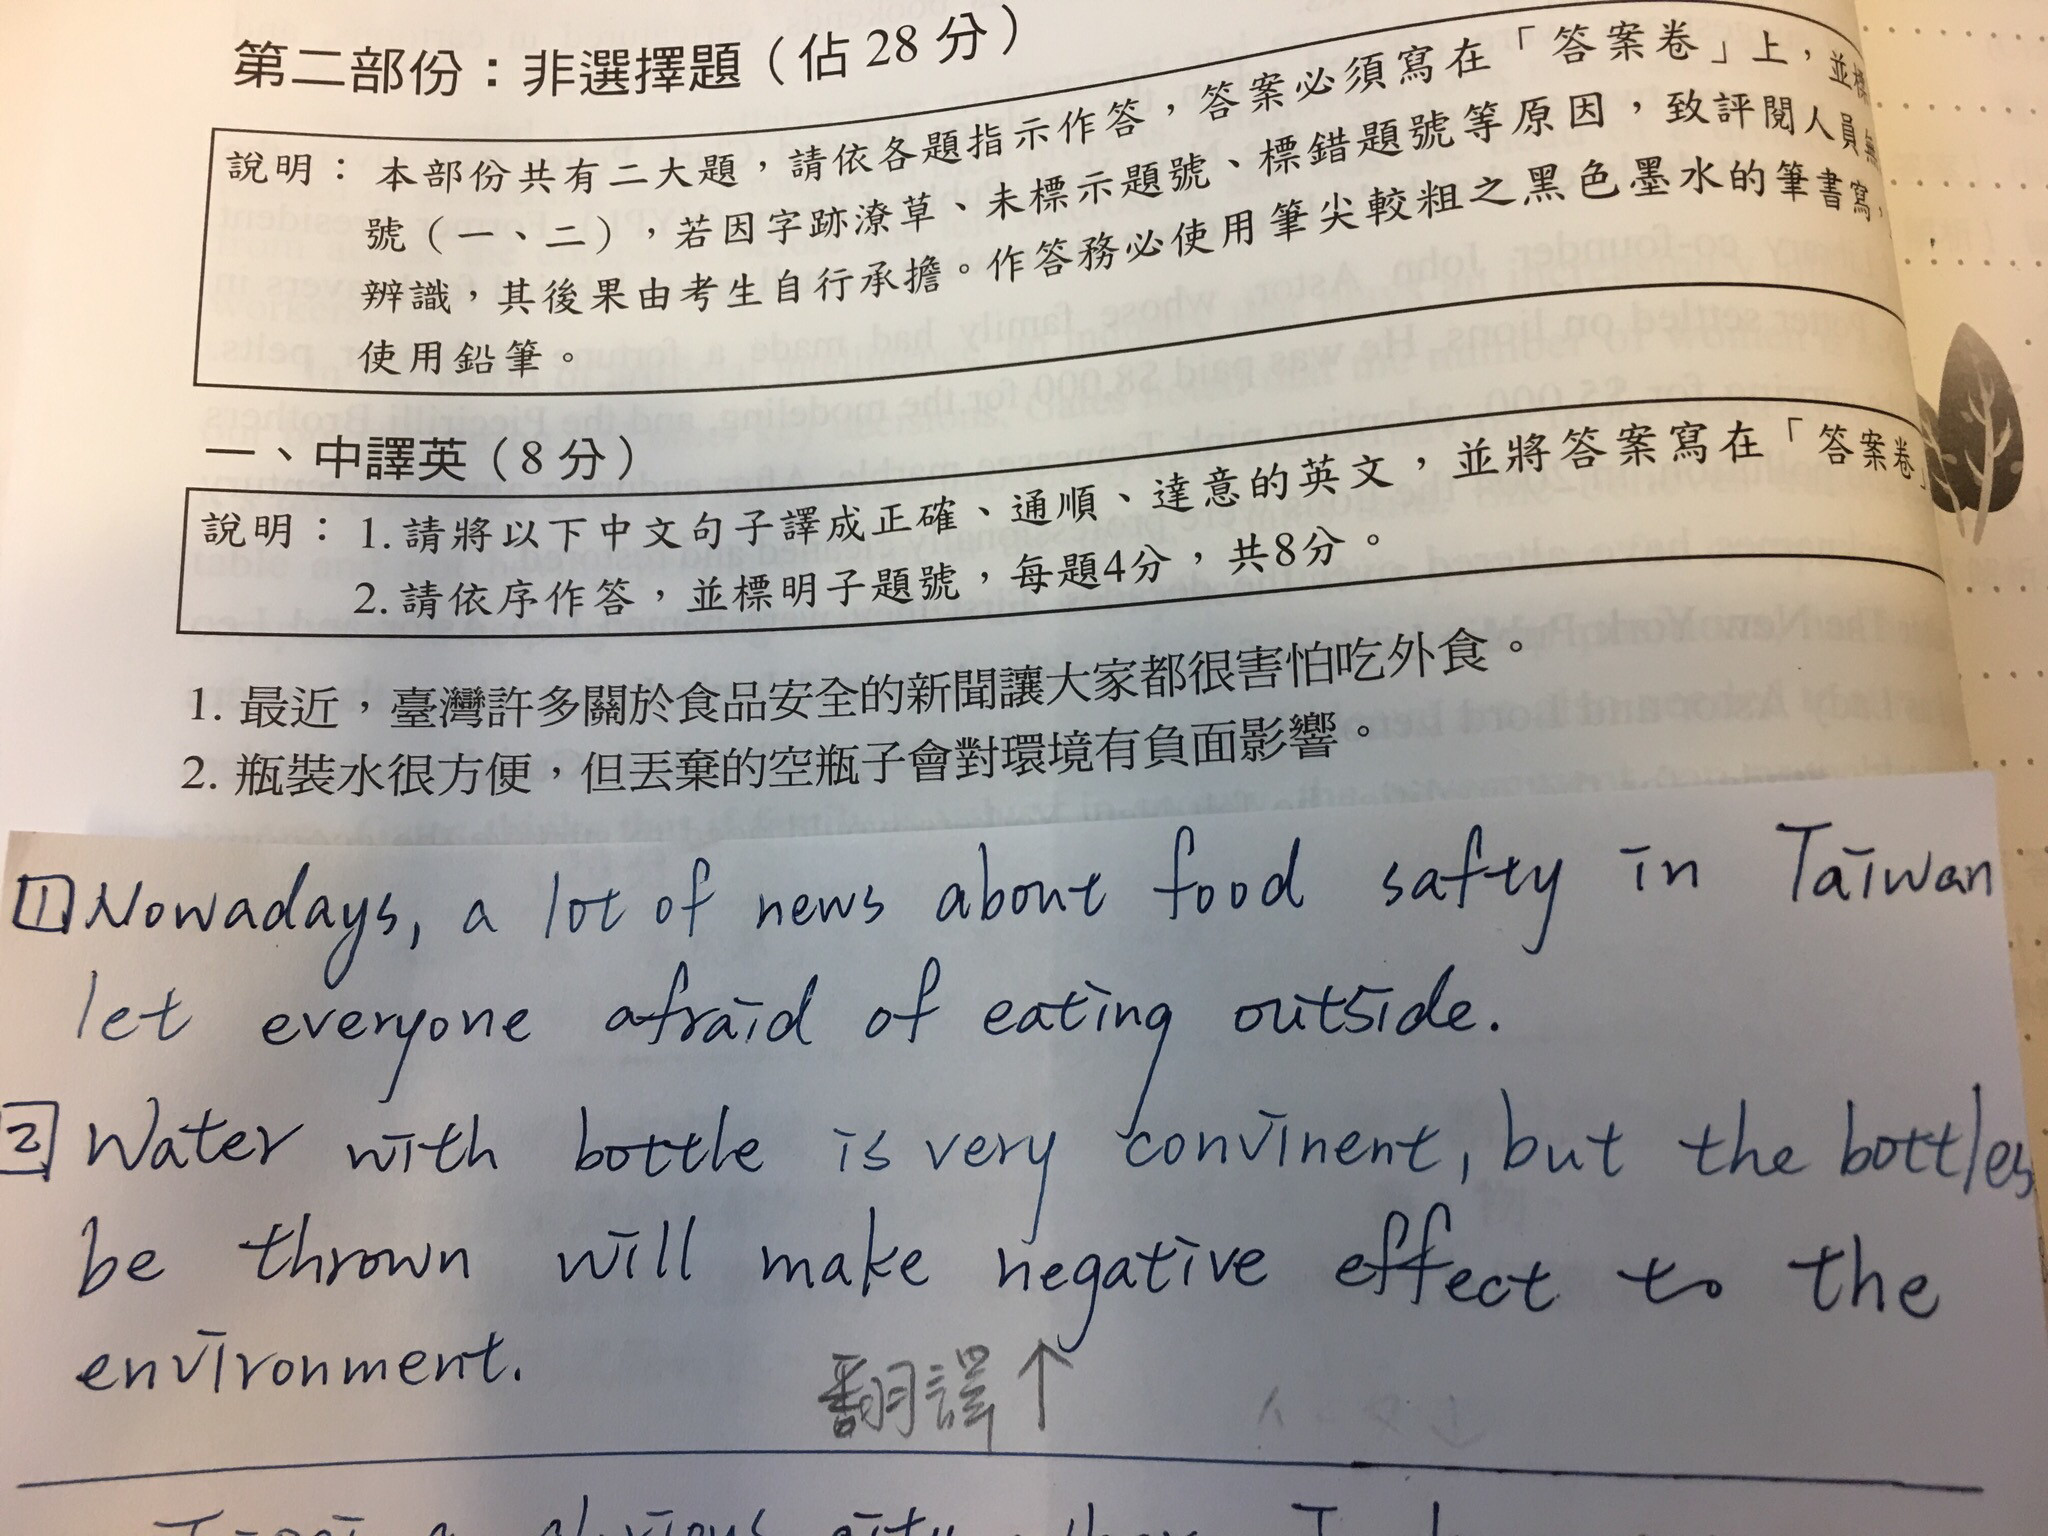 第二部份：非選擇題（佔 28 分）
說明：本部份共有二大題，請依各題指示作答，答案必須寫在「答案卷」上，並標
號（一、二），若因字跡潦草、未標示題號、標錯題號等原因，致評閱人員無
辨識，其後果由考生自行承擔。作答務必使用筆尖較粗之黑色墨水的筆書寫，
使用鉛筆。
一、中譯英（8 分）
說明：1. 請將以下中文句子譯成正確、通順、達意的英文，並將答案寫在「答案卷」
2. 請依序作答，並標明子題號，每題4分，共8分。
1. 最近，臺灣許多關於食品安全的新聞讓大家都很害怕吃外食。
2. 瓶裝水很方便，但丟棄的空瓶子會對環境有負面影響。
1. Nowadays, a lot of news about food safty in Taiwan
let everyone afraid of eating outside.
2 Water with bottle is very convinent, but the bottles
be thrown will make negative effect to the
environment.
翻譯↑